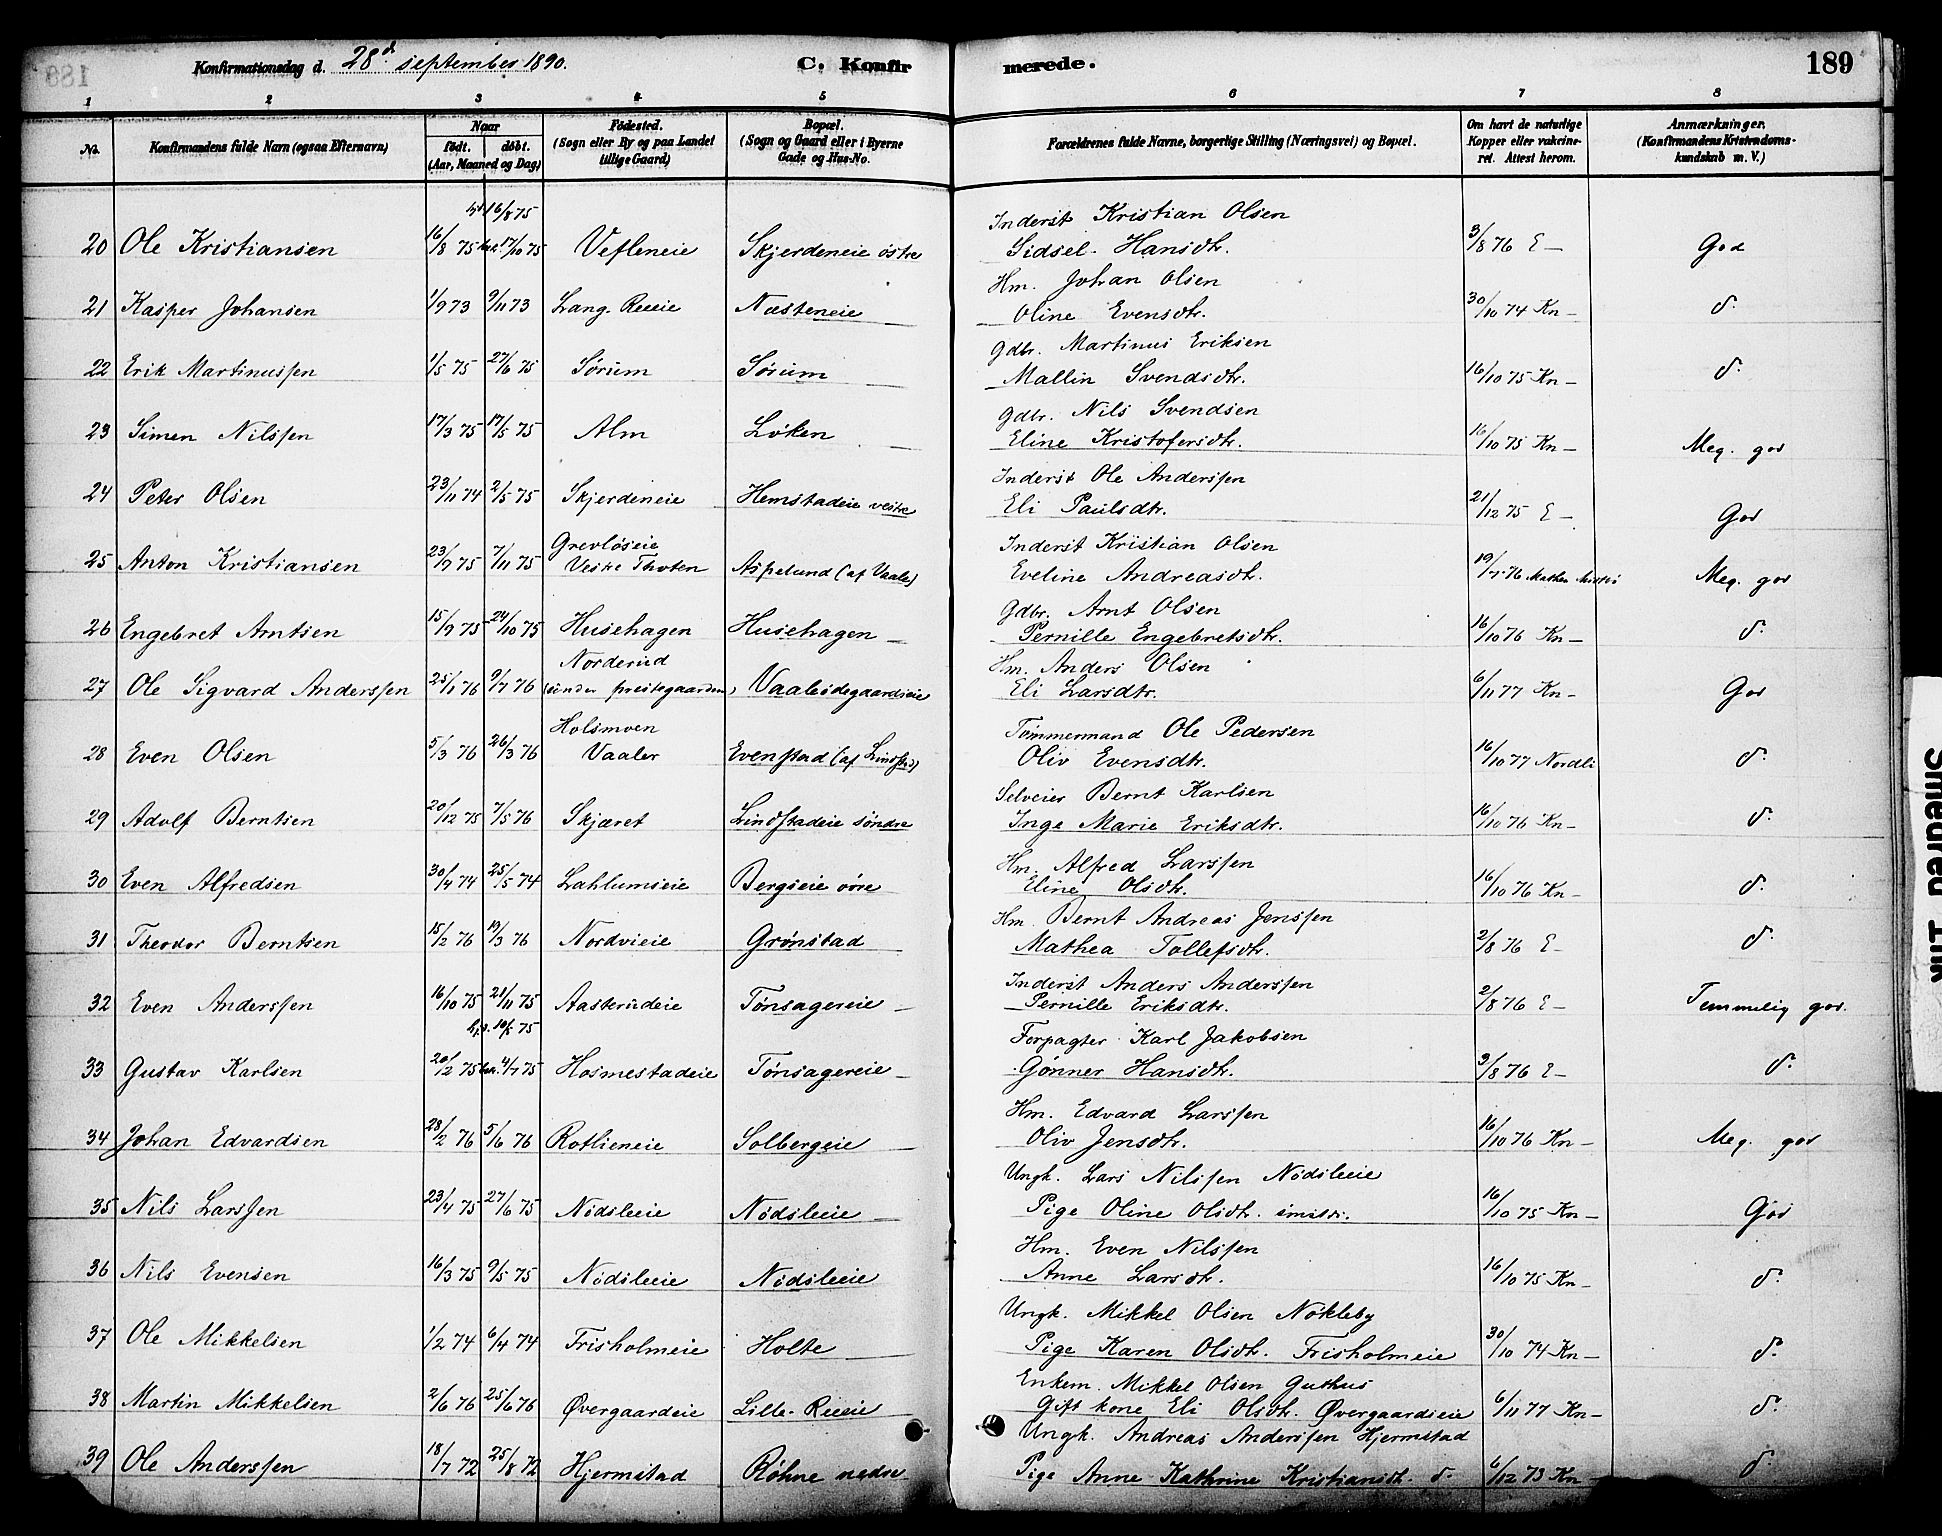 Konfirmationsdag d. 28d september 1890. C. Konfirmerede. 189
1 2 3 4 5 6 7 8
No. Konfirmandens fulde Navn (ogsaa Efternavn) Naar født. døbt. (Aar, Maaned og Dag) Fødested. (Sogn eller By og paa Landet tillige Gaard) Bopæl. (Sogn og Gaard eller i Byerne Gade og Hus-No. Forældrenes fulde Navne, borgerlige Stilling (Næringsvei) og Bopæl. Om havt de naturlige Kopper eller vakcineret. Attest herom. Anmærkninger. (Konfirmandens Kristendomskundskab m. V.)
hjd. 16/8 75 Inderst Kristian Olsen
20 Ole Kristiansen 16/8 75 bek. 17/10 75 Vefleneie Skjerdeneie östre Sidsel Hansdtr. 3/8 76 E— God
Hm. Johan Olsen
21 Kasper Johansen 1/9 73 9/11 73 Lang. Reeie Næsteneie Oline Evensdtr. 30/10 74 Kn— d.
Gdbr. Martinus Eriksen
22 Erik Martinussen 1/5 75 27/6 75 Sörum Sörum Mallin Svendsdtr. 16/10 75 Kn— d.
Gdbr. Nils Svendsen
23 Simen Nilssen 17/3 75 17/5 75 Alm Löken Eline Kristofersdtr. 16/10 75 Kn— Meg. god
Inderst Ole Anderssen
24 Peter Olsen 23/11 74 2/5 75 Skjerdeneie Hemstadeie vestre Eli Paulsdtr. 21/12 75 E— God
Grevlöseie Inderst Kristian Olsen
25 Anton Kristiansen 23/9 75 7/11 75 Vestre Thoten Aspelund (af Vaaler) Eveline Andreasdtr. 19/7 76 Meg. god
Gdbr. Arnt Olsen
26 Engebret Arntsen 15/9 75 24/10 75 Husehagen Husehagen Pernille Engebretsdtr. 16/10 76 Kn— d.
Norderud Hm. Anders Olsen
27 Ole Sigvard Anderssen 25/1 76 9/7 76 (under prestegaarden) Vaalsödegaardseie Eli Larsdtr. 6/11 77 Kn— God
Holsmoen Tömmermand Ole Pedersen
28 Even Olsen 5/3 76 26/3 76 Vaaler Evenstad (af Lindstad) Oliv Evensdtr. 16/10 77 Nordli d.
Selveier Bernt Karlsen
29 Adolf Berntsen 20/12 75 7/5 76 Skjæret Lindstadeie söndre Inge Marie Eriksdtr. 16/10 76 Kn— d.
Hm. Alfred Larssen
30 Even Alfredsen 30/4 74 25/5 74 Lahlumseie Bergseie övre Eline Olsdtr. 16/10 76 Kn— d.
Hm. Bernt Andreas Jenssen
31 Theodor Berntsen 15/2 76 19/3 76 Nordvieie Grönstad Mathea Tollefsdtr. 2/8 76 E— d.
Inderst Anders Anderssen
32 Even Anderssen 16/10 75 21/11 75 Aasterudeie Tönsagereie Pernille Eriksdtr. 2/8 76 E— Temmelig god.
hjd. 10/5 75 Forpagter Karl Jakobsen
33 Gustav Karlsen 20/2 75 bek. 4/7 75 Hosmestadeie Tönsagereie Gønner Hansdtr. 3/8 76 E— d.
Hm. Edvard Larssen
34 Johan Edvardsen 28/2 76 5/6 76 Rotlieneie Solbergeie Oliv Jensdtr. 16/10 76 Kn— Meg. god
Ungk. Lars Nilssen Nödsleeie
35 Nils Larssen 23/4 75 27/6 75 Nödsleeie Nödsleeie Pige Oline Olsdtr. 16/10 75 Kn— God
Hm. Even Nilssen
36 Nils Evensen 16/3 75 9/5 75 Nödsleeie Nödsleeie Anne Larsdtr. 16/10 75 Kn— d.
Ungk. Mikkel Olsen Nökleby
37 Ole Mikkelsen 1/2 74 6/4 74 Frisholmeie Holte Pige Karen Olsdtr. Frisholmeie 30/10 74 Kn— d.
Enkem. Mikkel Olsen Guthus
38 Martin Mikkelsen 2/6 76 25/6 76 Øvergaardeie Lille-Reeie Gift kone Eli Olsdtr. Øvergaardseie 6/11 77 Kn— d.
Ungk. Andreas Anderssen Hjermstad
39 Ole Anderssen 18/7 72 25/8 72 Hjermstad Röhne nedre Pige Anne Kathrine Kristiansdtr. d. 6/12 73 Kn— d.